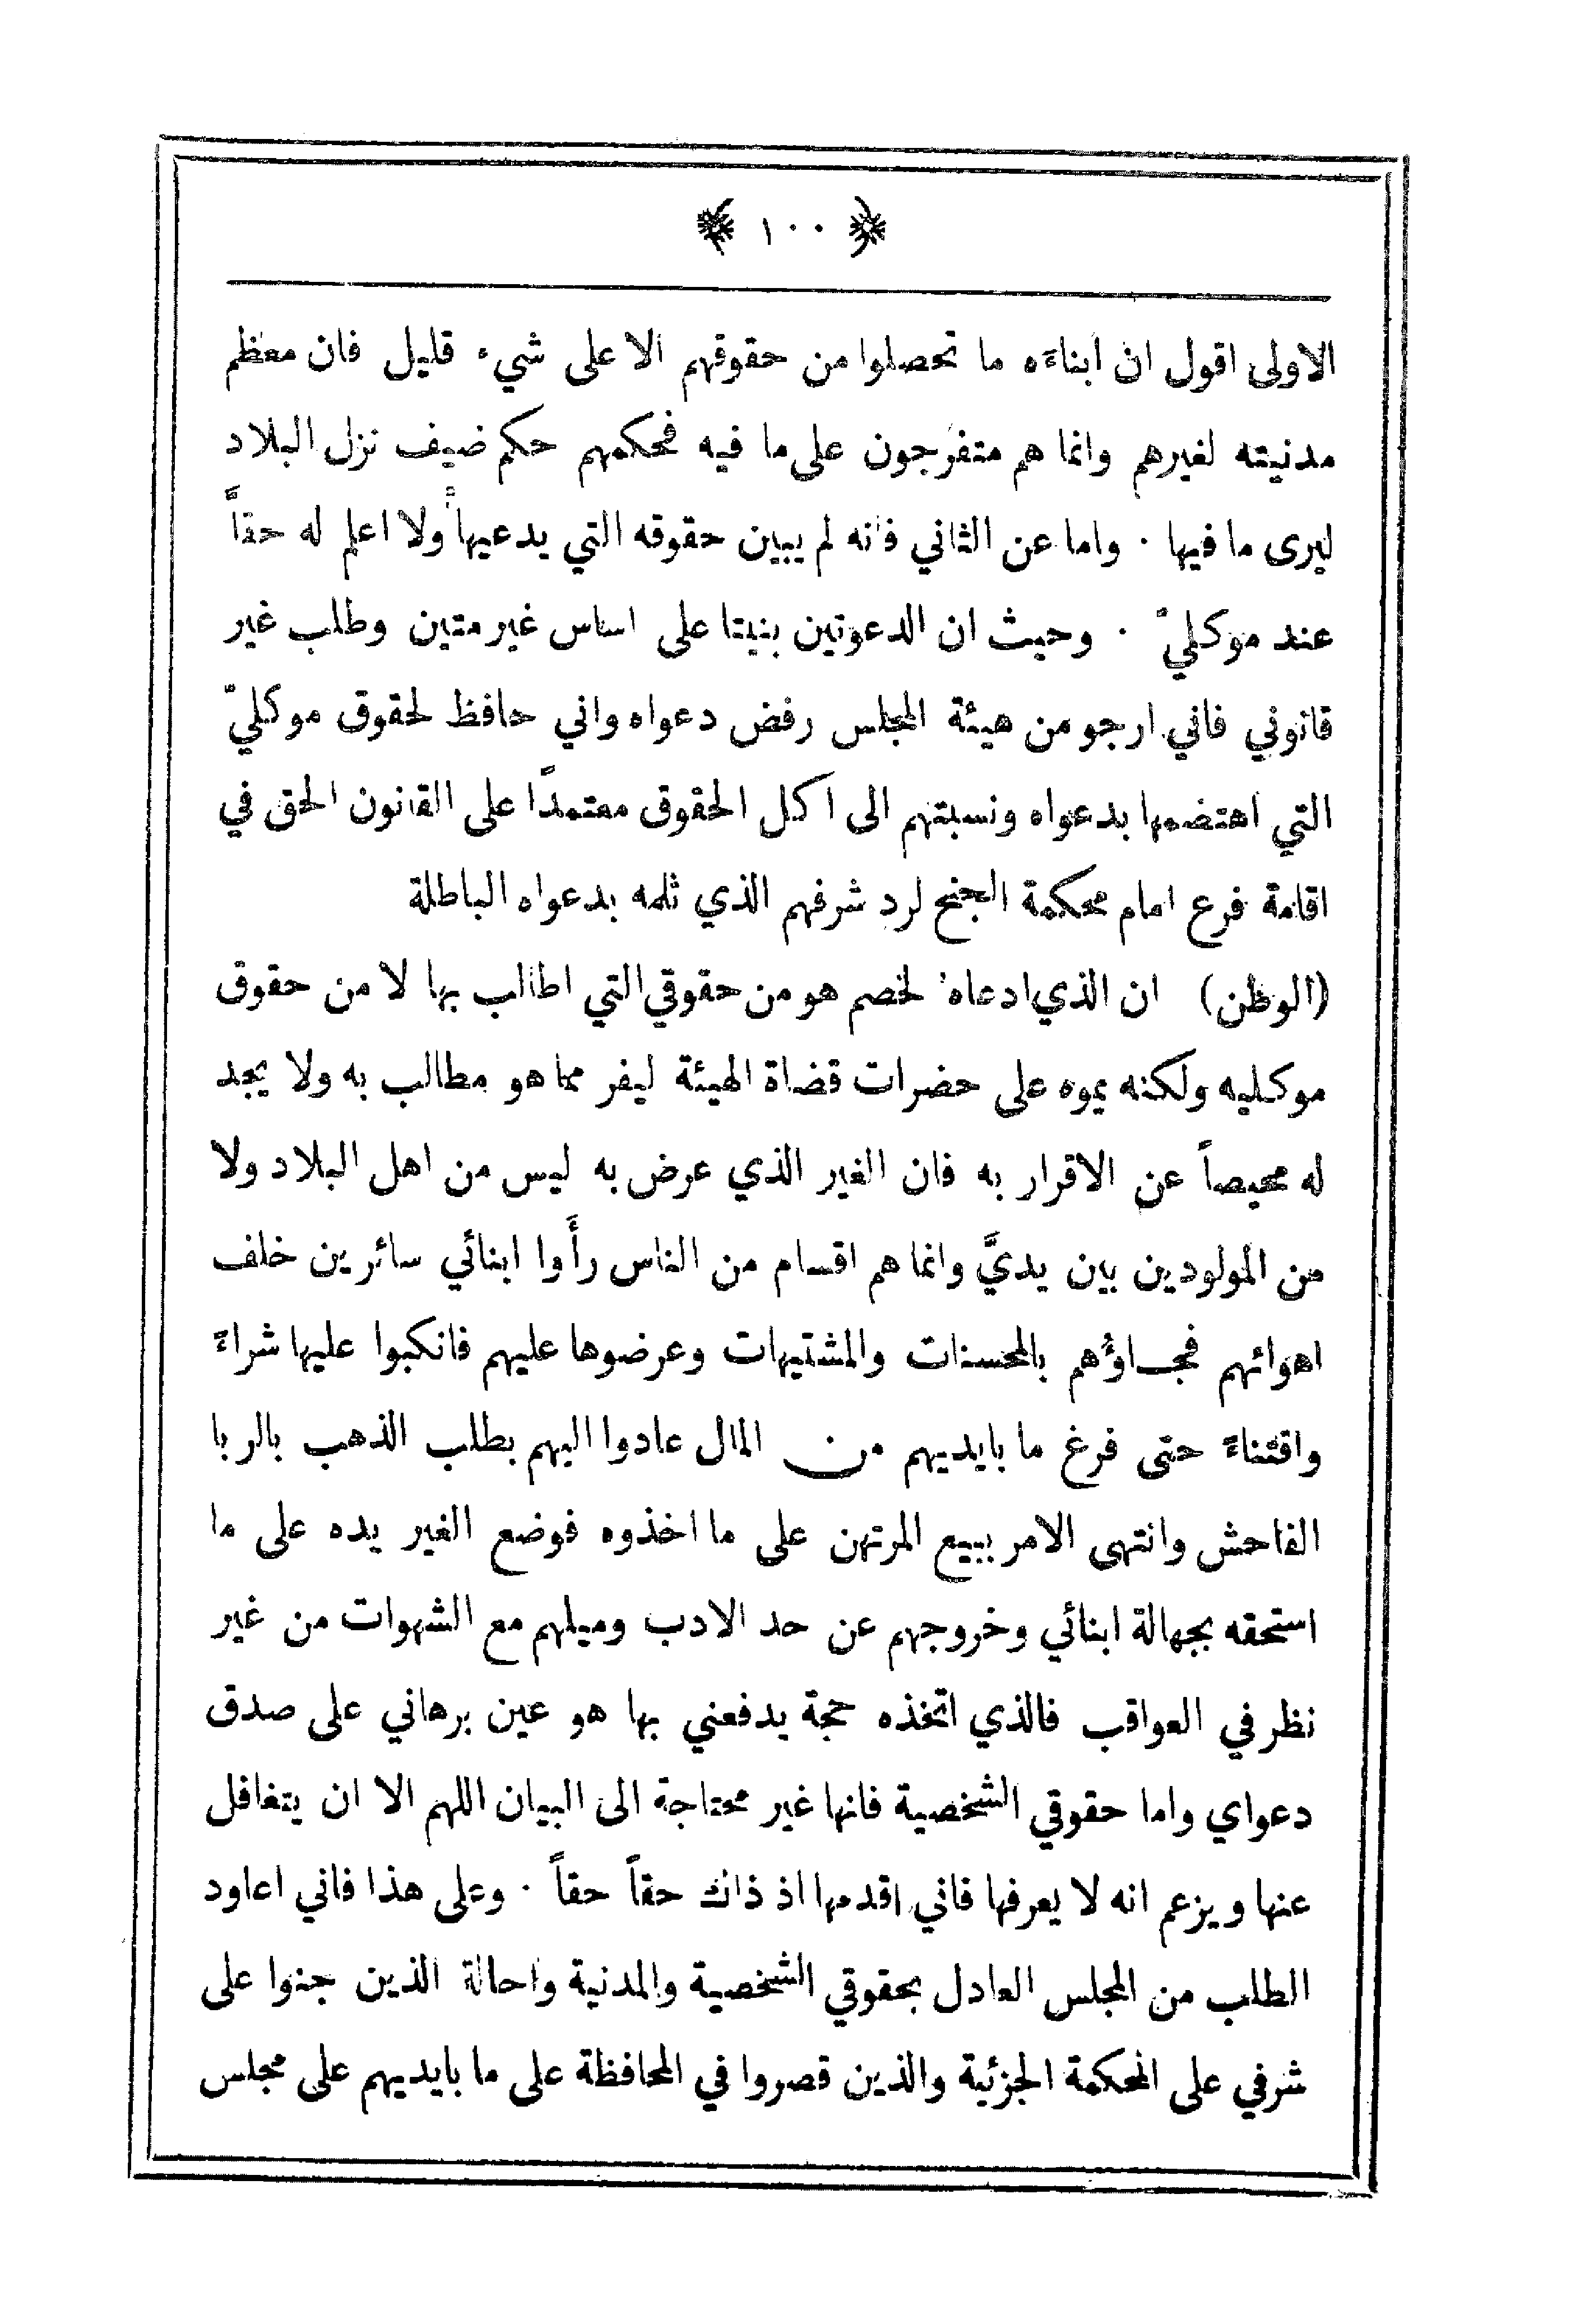 ﴿ ١٠٠ ﴾
الاولى اقول ان ابناءَه ما تحصلوا من حقوقهم الا على شيء قليل فان معظم
مدنيته لغيرهم وانما هم متفرجون على ما فيه فحكمهم حكم ضيف نزل البلاد
ليرى ما فيها · واما عن الثاني فانه لم يبين حقوقه التي يدعيها ولا اعلم له حقاً
عند موكليّ · وحيث ان الدعوتين بنيتا على اساس غير متين وطلب غير
قانوني فاني ارجو من هيئة المجلس رفض دعواه واني حافظ لحقوق موكليّ
التي اهتضمها بدعواه ونسبتهم الى اكل الحقوق معتمدًا على القانون الحق في
اقامة فرع امام محكمة الجنح لرد شرفهم الذي ثلمه بدعواه الباطلة
(الوطن) ان الذي ادعاه الخصم هو من حقوقي التي اطالب بها لا من حقوق
موكليه ولكنه يموه على حضرات قضاة الهيئة ليفر مما هو مطالب به ولا يجد
له محيصاً عن الاقرار به فان الغير الذي عرض به ليس من اهل البلاد ولا
من المولودين بين يديَّ وانما هم اقسام من الناس رأَوا ابنائي سائرين خلف
اهوائهم فجاؤُهم بالمحسنات والمشتهيات وعرضوها عليهم فانكبوا عليها شراءً
واقتناءً حتى فرغ ما بايديهم من المال عادوا اليهم بطلب الذهب بالربا
الفاحش وانتهى الامر ببيع المرتهن على ما اخذوه فوضع الغير يده على ما
استحقه بجهالة ابنائي وخروجهم عن حد الادب وميلهم مع الشهوات من غير
نظر في العواقب فالذي اتخذه حجة يدفعني بها هو عين برهاني على صدق
دعواي واما حقوقي الشخصية فانها غير محتاجة الى البيان اللهم الا ان يتغافل
عنها ويزعم انه لا يعرفها فاني اقدمها اذ ذاك حقاً حقاً · وعلى هذا فاني اعاود
الطلب من المجلس العادل بحقوقي الشخصية والمدنية واحالة الذين جنوا على
شرفي على المحكمة الجزئية والذين قصروا في المحافظة على ما بايديهم على مجلس